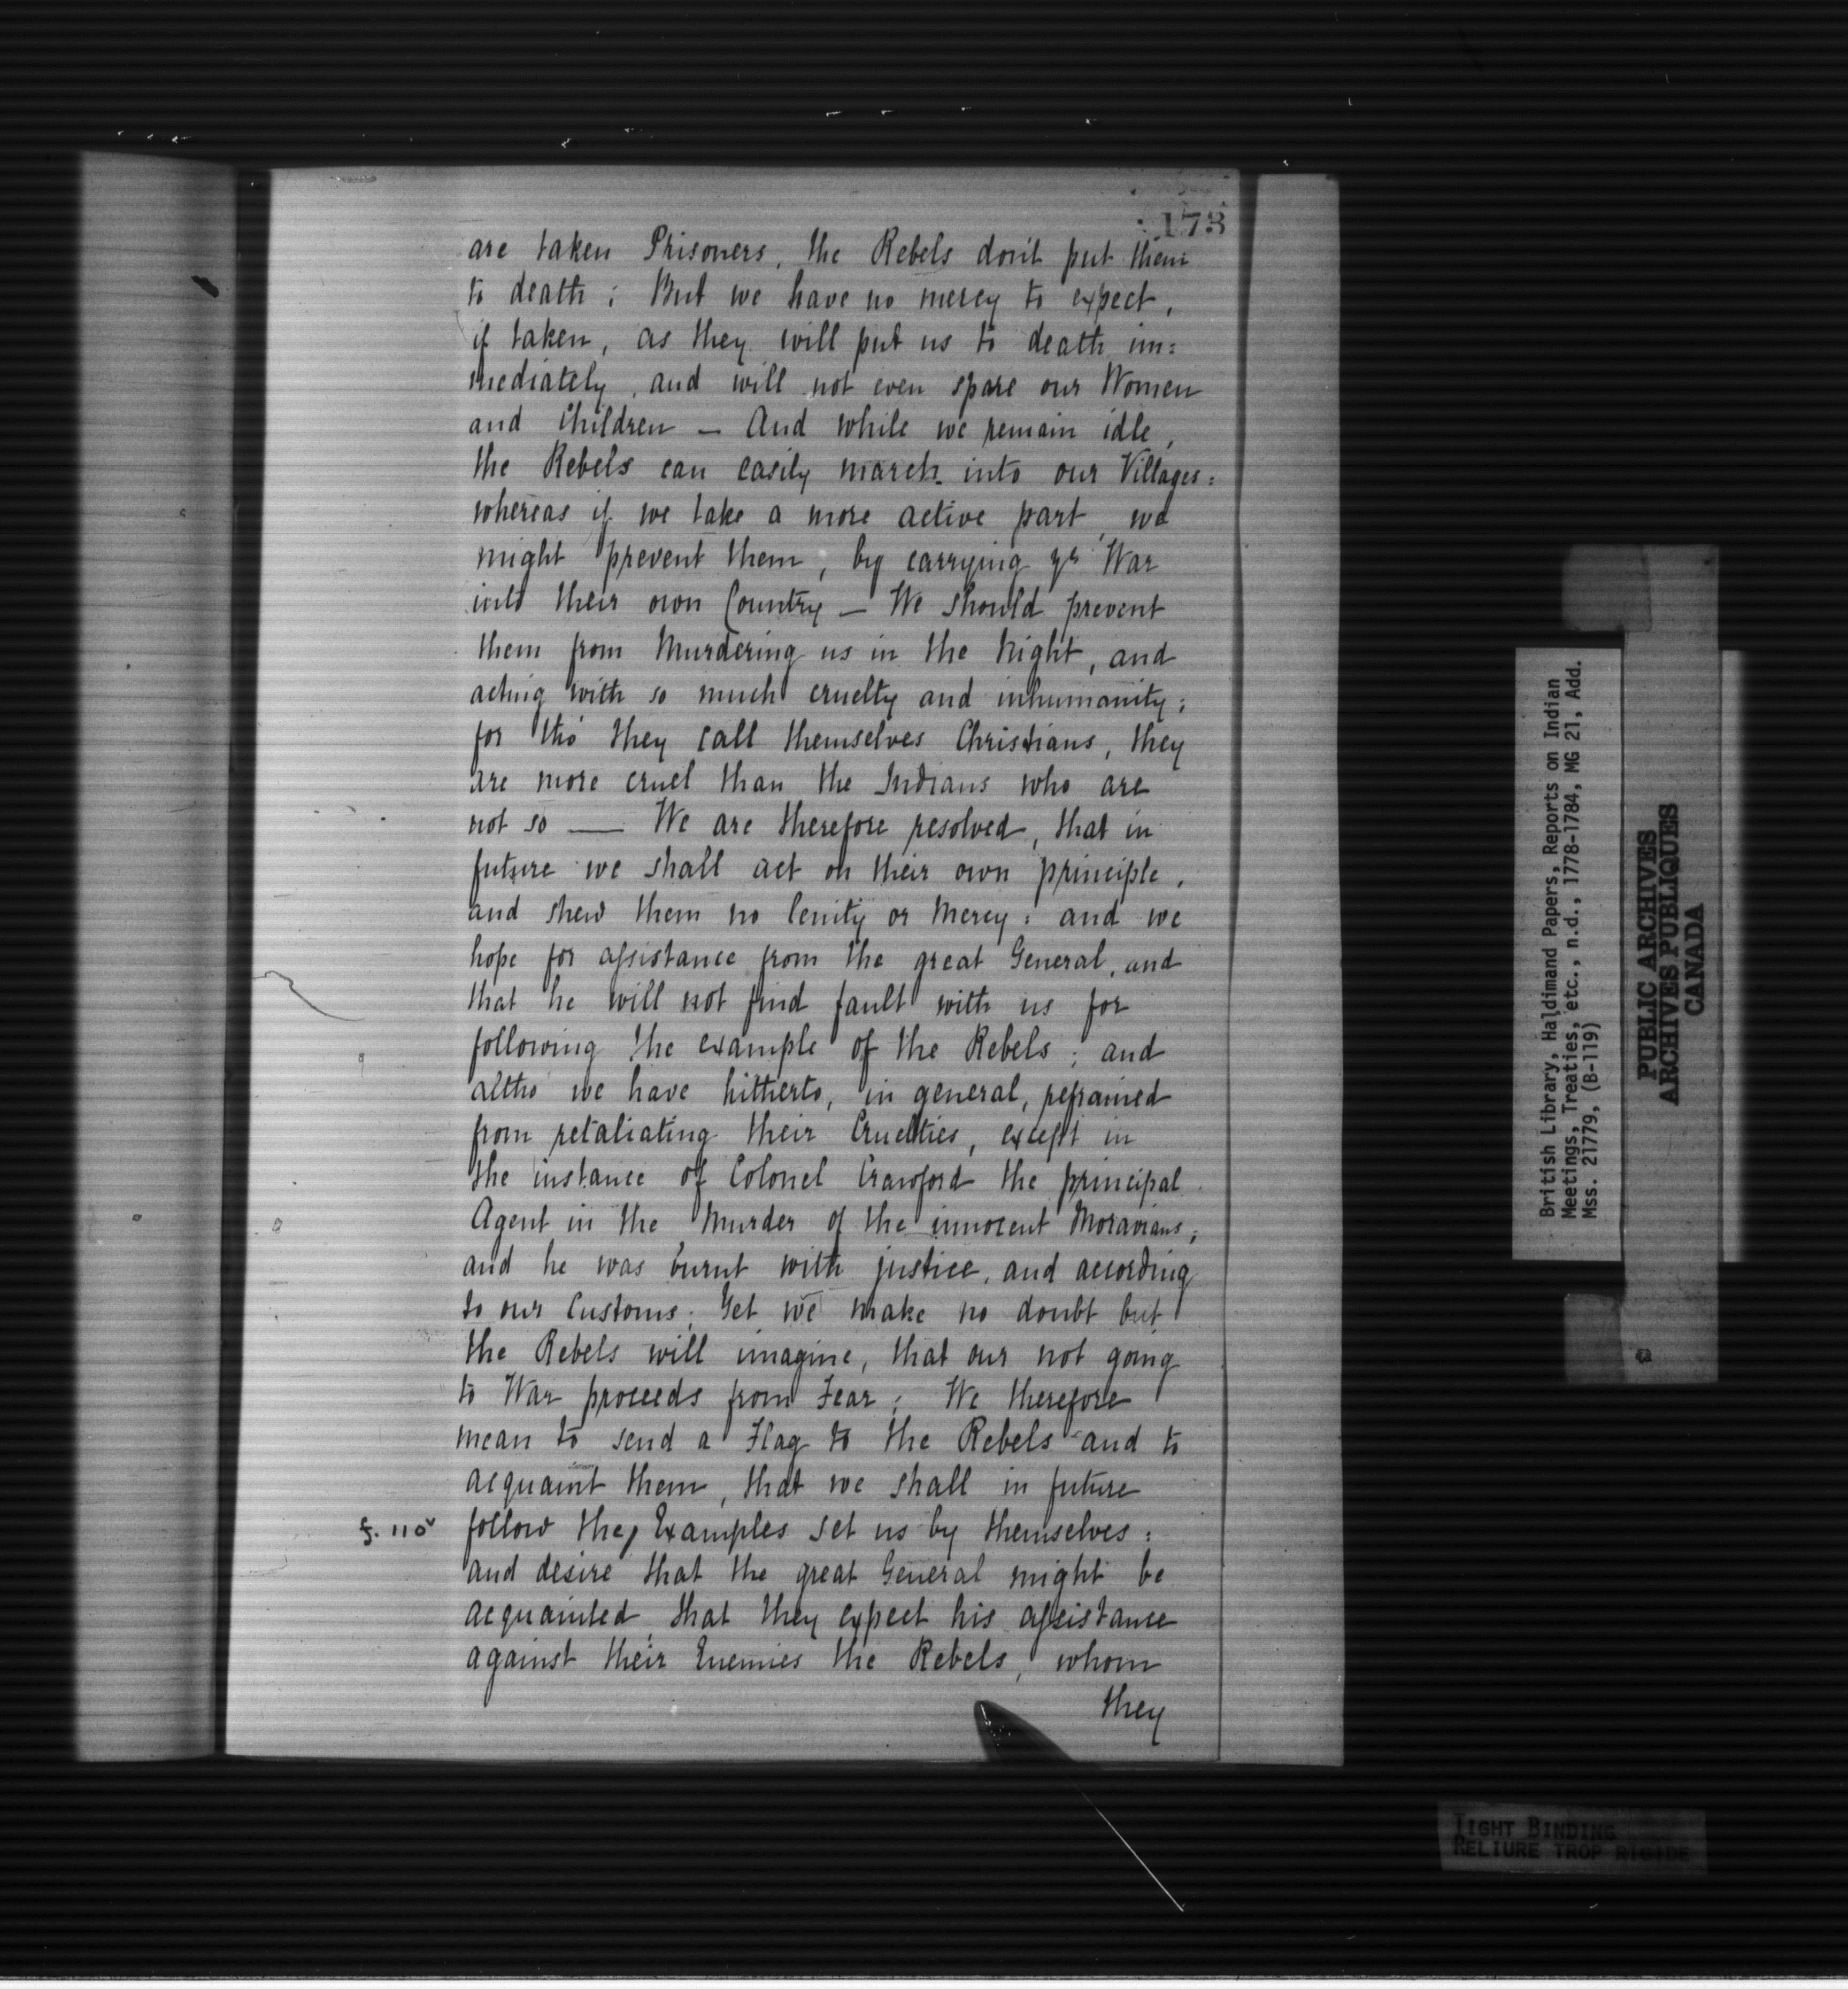 173
are taken Prisoners, the Rebels don't put them
to death; But we have no mercy to expect,
if taken, as they will put us to death im=
mediately, and will not even spare our Women
and Children — And while we remain idle,
the Rebels can easily march into our Villages:
whereas if we take a more active part, we
might prevent them, by carrying yr War
into their own Country — We should prevent
them from Murdering us in the Night, and
acting with so much cruelty and inhumanity;
for tho' they call themselves Christians, they
are more cruel than the Indians who are
not so — We are therefore resolved, that in
future we shall act on their own principle,
and shew them no lenity or Mercy: and we
hope for assistance from the great General, and
that he will not find fault with us for
following the example of the Rebels; and
altho' we have hitherto, in general, refrained
from retaliating their Cruelties, except in
the instance of Colonel Crawford the principal
Agent in the Murder of the innocent Moravians;
and he was burnt with justice, and according
to our Customs; Yet we make no doubt but
the Rebels will imagine, that our not going
to War proceeds from Fear; We therefore
mean to send a Flag to the Rebels and to
acquaint them, that we shall in future
f. 110v follow the, Examples set us by themselves:
and desire that the great General might be
acquainted, that they expect his assistance
against their Enemies the Rebels, whom
they
British Library, Haldimand Papers, Reports on Indian
Meetings, Treaties, etc., n.d., 1778-1784, MG 21, Add.
Mss. 21779, (B-119)
PUBLIC ARCHIVES
ARCHIVES PUBLIQUES
CANADA
TIGHT BINDING
RELIURE TROP RIGIDE